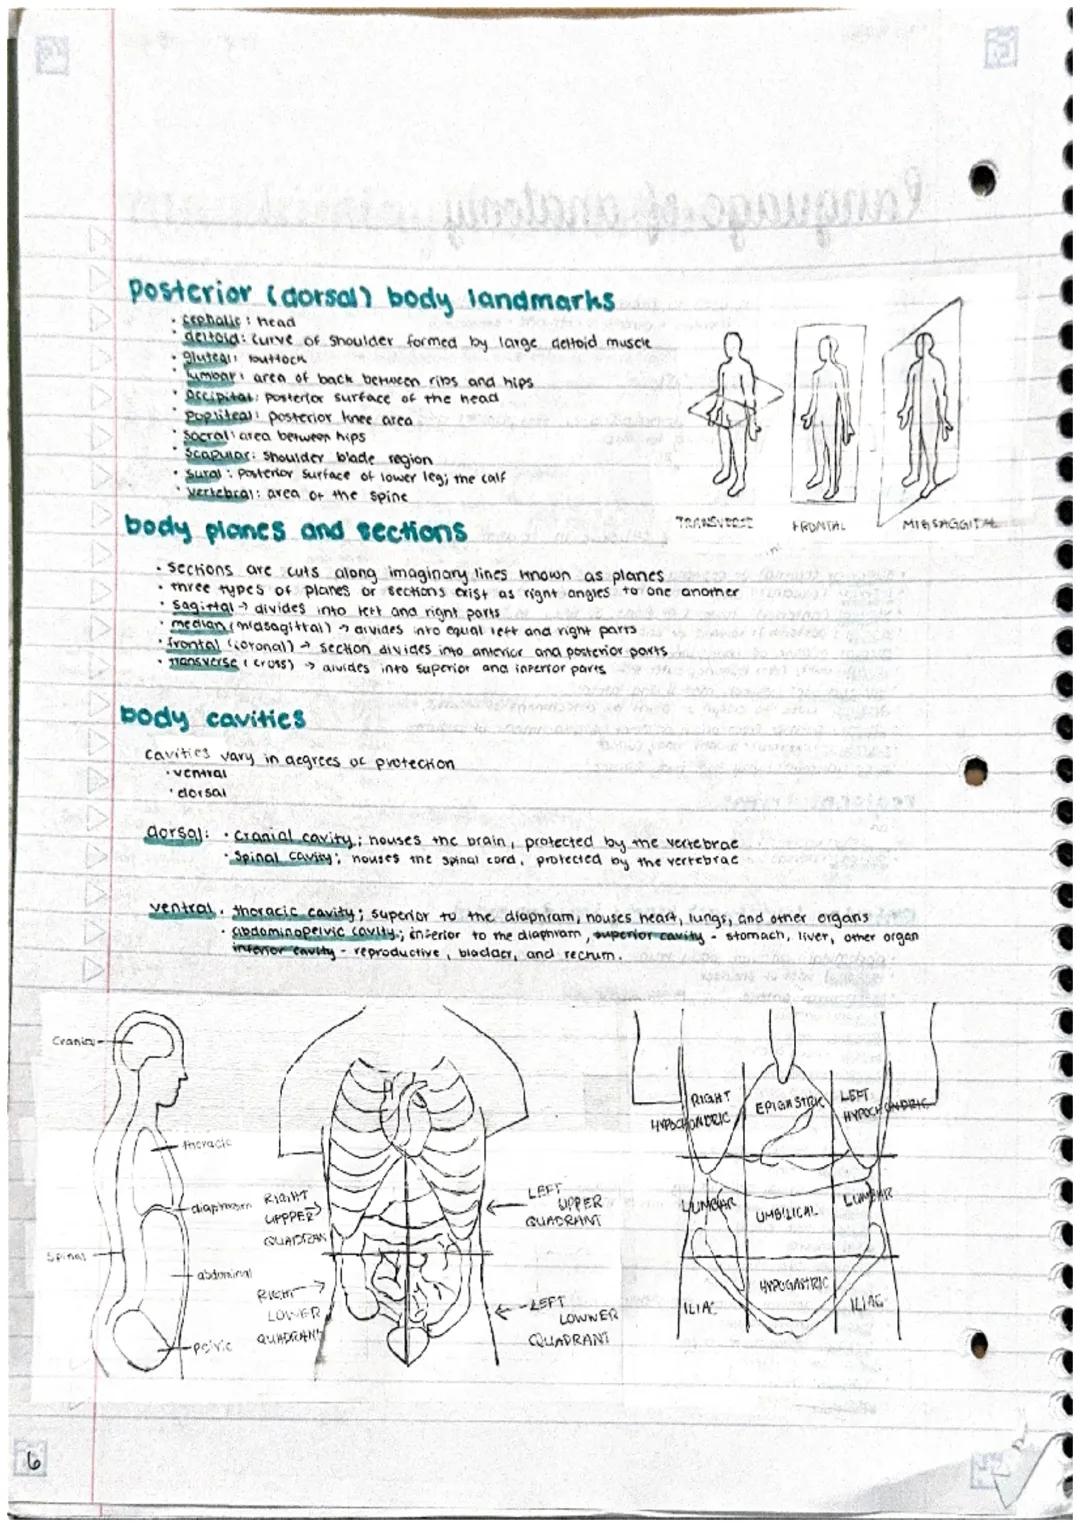 Posterior (dorsal) body landmarks
· cephalic: head
· deltoid: curve of shoulder formed by large deltoid muscle
· gluteal: buttock
· lumbar: area of back between ribs and hips
· occipital: posterior surface of the head
· popliteal: posterior knee area
· sacral: area between hips
· scapular: shoulder blade region
· sural: posterior surface of lower leg; the calf
· vertebral: area of the spine
TRANSVERSE
FRONTAL
MIDSAGGITAL
body planes and sections
· sections are cuts along imaginary lines known as planes
· three types of planes or sections exist as right angles to one another
· sagittal → divides into left and right parts
· median (midsagittal) → divides into equal left and right parts
· frontal (coronal) → section divides into anterior and posterior parts
· transverse (cross) → divides into superior and inferior parts
body cavities
cavities vary in degrees of protection
· ventral
· dorsal
dorsal: · cranial cavity; houses the brain, protected by the vertebrae
· spinal cavity; houses the spinal cord, protected by the vertebrae
ventral · thoracic cavity; superior to the diaphram, houses heart, lungs, and other organs
· abdominopelvic cavity; inferior to the diaphram, superior cavity - stomach, liver, other organ
inferior cavity - reproductive, bladder, and rectum.
Cranial
thoracic
diaphragm
Spinal
abdominal
pelvic
RIGHT
UPPPER
QUADRAN
LEFT
UPPER
QUADRANT
RIGHT
LOWER
QUADRANT
LEFT
LOWWER
QUADRANT
RIGHT
HYPOCHONDRIC
EPIGASTRIC
LEFT
HYPOCHONDRIC
LUMBAR
UMBILICAL
LUMBAR
ILIAC
HYPOGASTRIC
ILIAC
6